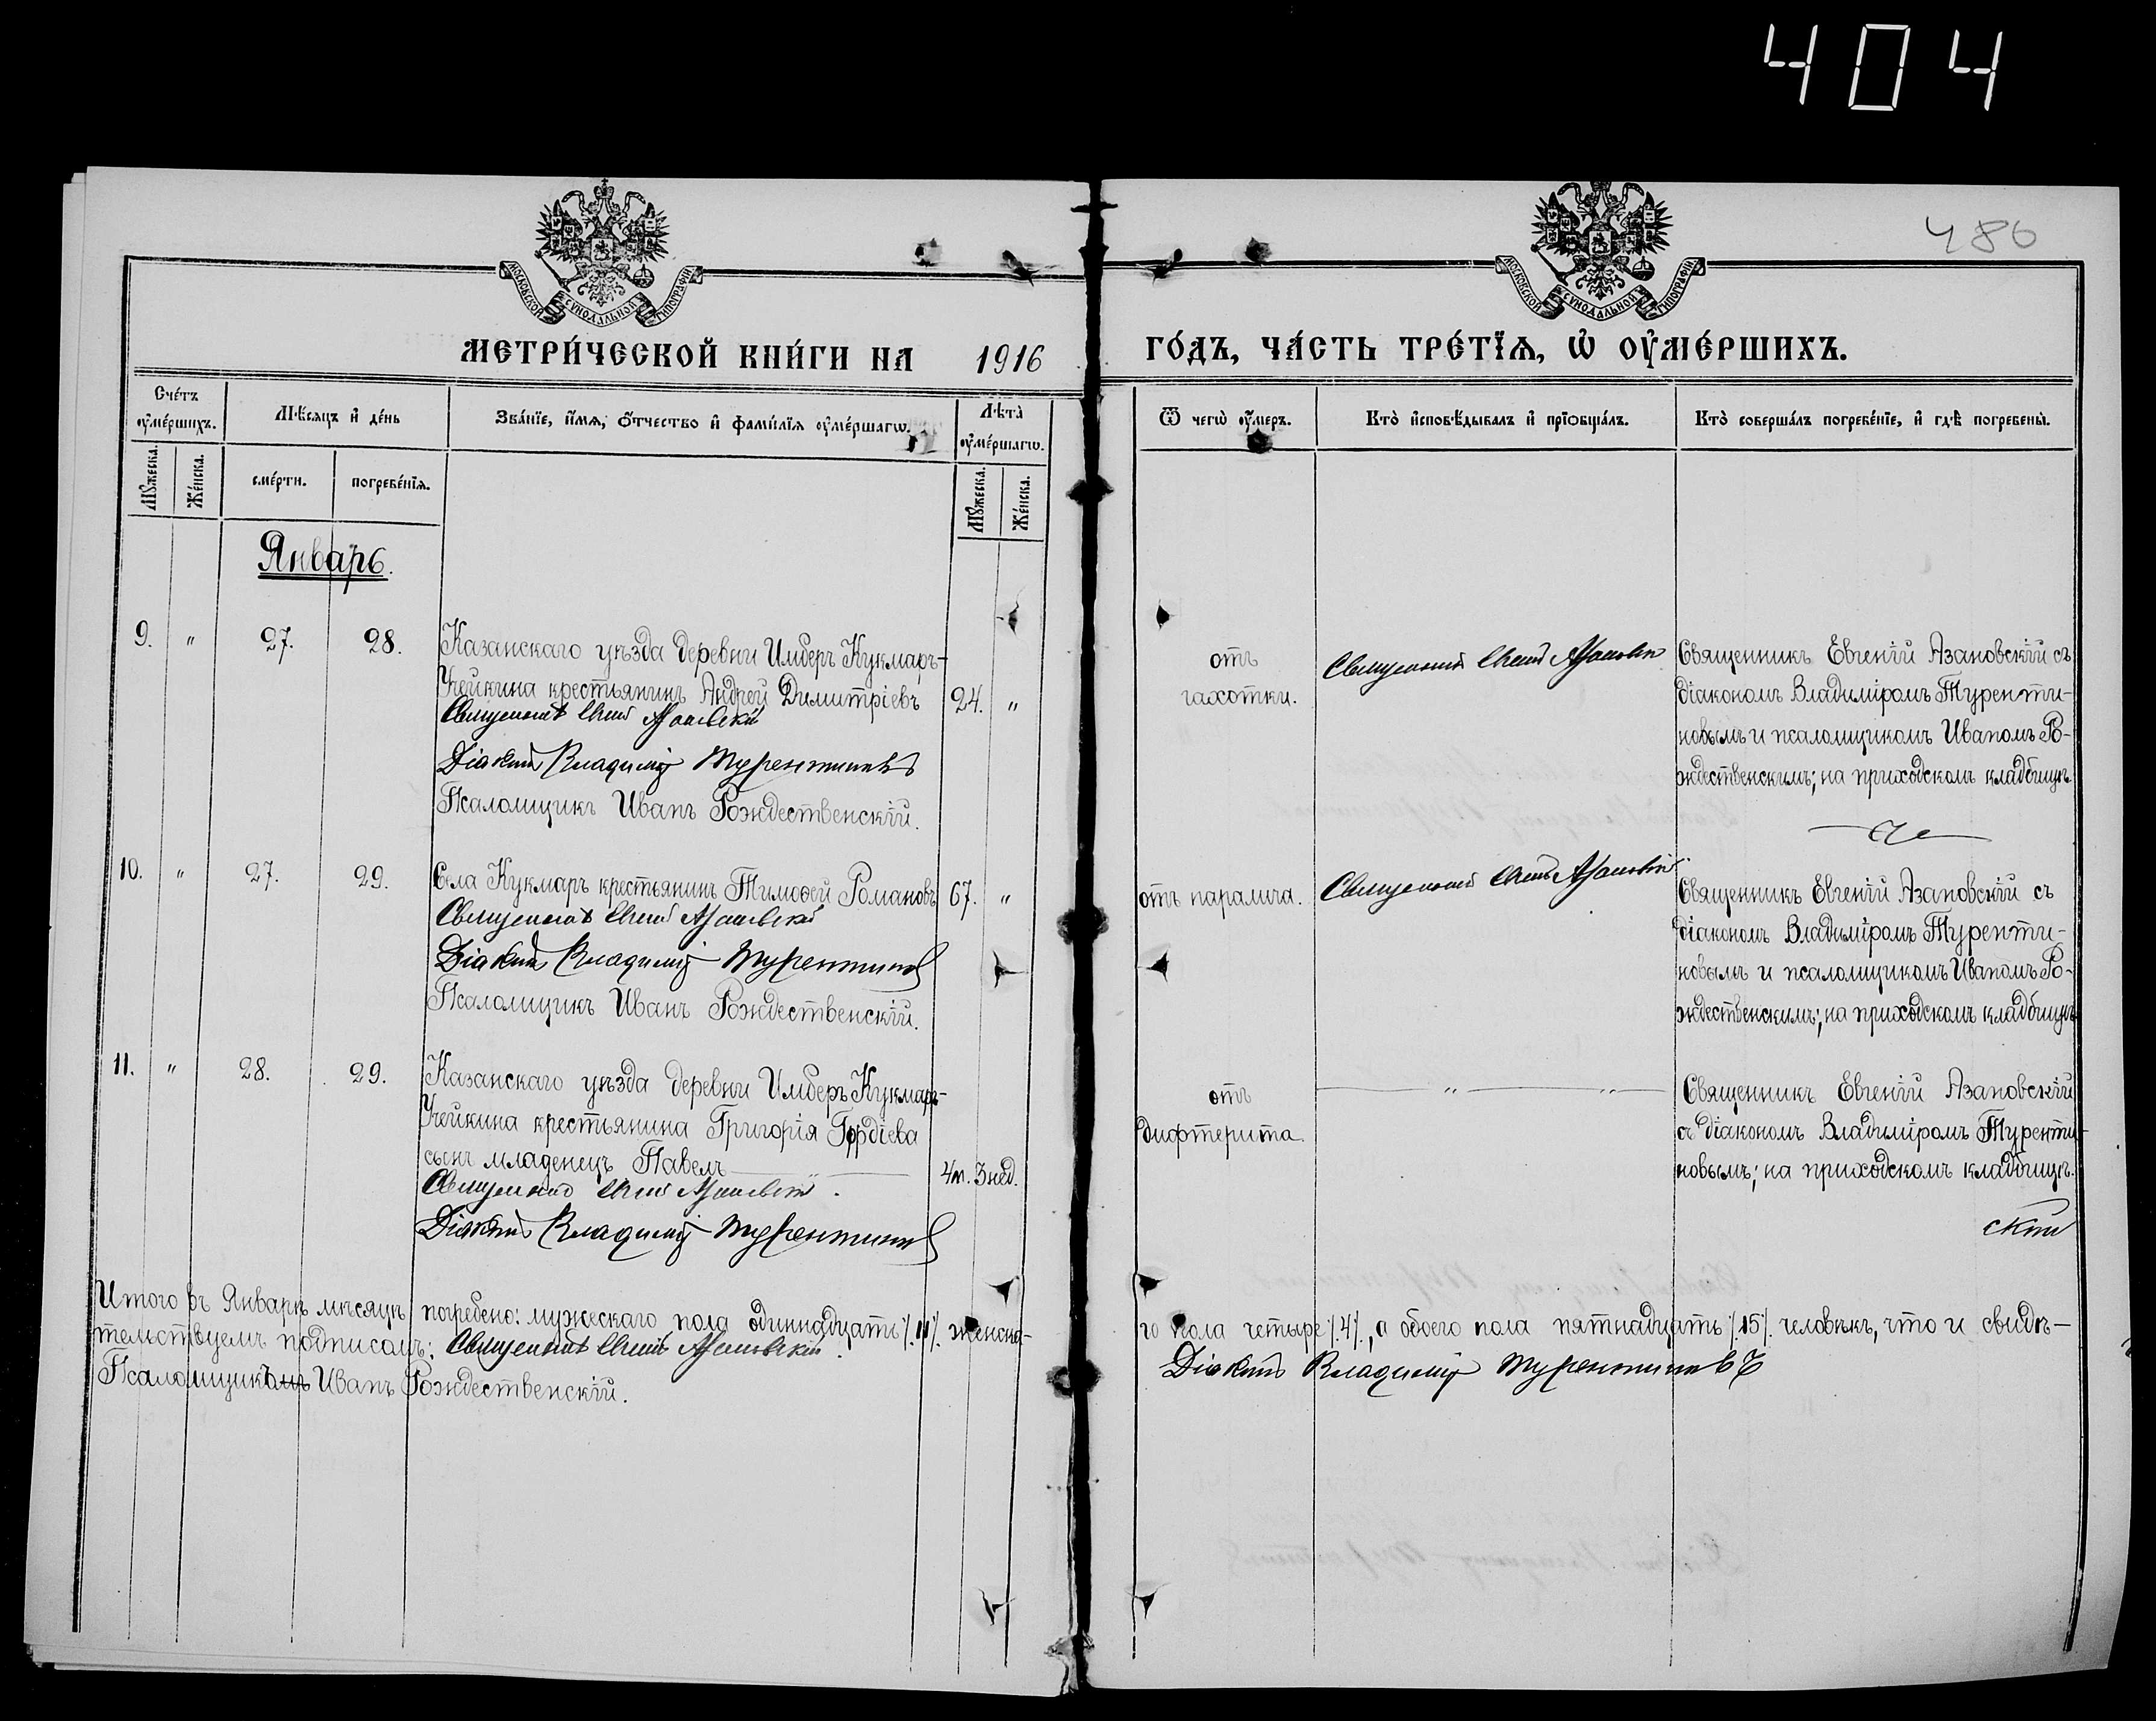 404
486
МОСКОВСКОЙ СѴНОДАЛЬНОЙ ТИПОГРАФІИ
МОСКОВСКОЙ СѴНОДАЛЬНОЙ ТИПОГРАФІИ
МЕТРИ́ЧЕСКОЙ КНИ́ГИ НА 1916 ГО́ДЪ, ЧА́СТЬ ТРЕ́ТЇѦ, Ѡ҆ ОУ҆МЕ́РШИХЪ.
Сче́тъ оу҆ме́ршихъ.
Мѣ́сяцъ и҆ де́нь
Зва́нїе, и҆́мя, ѻ҆́тчество и҆ фами́лїя оу҆ме́ршагѡ.
Лѣ́та оу҆ме́ршагѡ.
Ѿ чегѡ̀ оу҆́меръ.
Кто̀ и҆сповѣ́дывалъ и҆ прїѻбща́лъ.
Кто̀ соверша́лъ погребе́нїе, и҆ гдѣ̀ погребены̀.
Мꙋ́жеска.
Же́нска.
сме́рти.
погребе́нїя.
Мꙋ́жеска.
Же́нска.
Январь.
9. " 27. 28. Казанскаго уѣзда деревни Имберъ Кукмаръ-
Учейкина крестьянинъ Андрей Димитріевъ 24. "
Священникъ Евгеній Азановскій
Діаконъ Владиміръ Турентиновъ
Псаломщикъ Иванъ Рождественскій.
отъ
чахотки.
Священникъ Евгеній Азановскій
Священникъ Евгеній Азановскій съ
діакономъ Владиміромъ Туренти-
новымъ и псаломщикомъ Иваномъ Ро-
ждественскимъ; на приходскомъ кладбищѣ.
10. " 27. 29. Села Кукмаръ крестьянинъ Тимоѳей Романовъ 67. "
Священникъ Евгеній Азановскій
Діаконъ Владиміръ Турентиновъ
Псаломщикъ Иванъ Рождественскій.
отъ паралича.
Священникъ Евгеній Азановскій
Священникъ Евгеній Азановскій съ
діакономъ Владиміромъ Туренти-
новымъ и псаломщикомъ Иваномъ Ро-
ждественскимъ; на приходскомъ кладбищѣ.
11. " 28. 29. Казанскаго уѣзда деревни Имберъ Кукмаръ-
Учейкина крестьянина Григорія Гордіева
сынъ младенецъ Павелъ — " — 4м. 3 нед.
Священникъ Евгеній Азановскій.
Діаконъ Владиміръ Турентиновъ
отъ
дифтерита.
— " — " —
Священникъ Евгеній Азановскій
съ діакономъ Владиміромъ Туренти-
новымъ; на приходскомъ кладбищѣ.
скій
Итого въ Январѣ мѣсяцѣ погребено: мужескаго пола одиннадцать /.11/. женска-
го пола четыре /.4/., а обоего пола пятнадцать /.15/. человѣкъ, что и свидѣ-
тельствуемъ подписомъ: Священникъ Евгеній Азановскій.
Діаконъ Владиміръ Турентиновъ
Псаломщикомъ Иванъ Рождественскій.